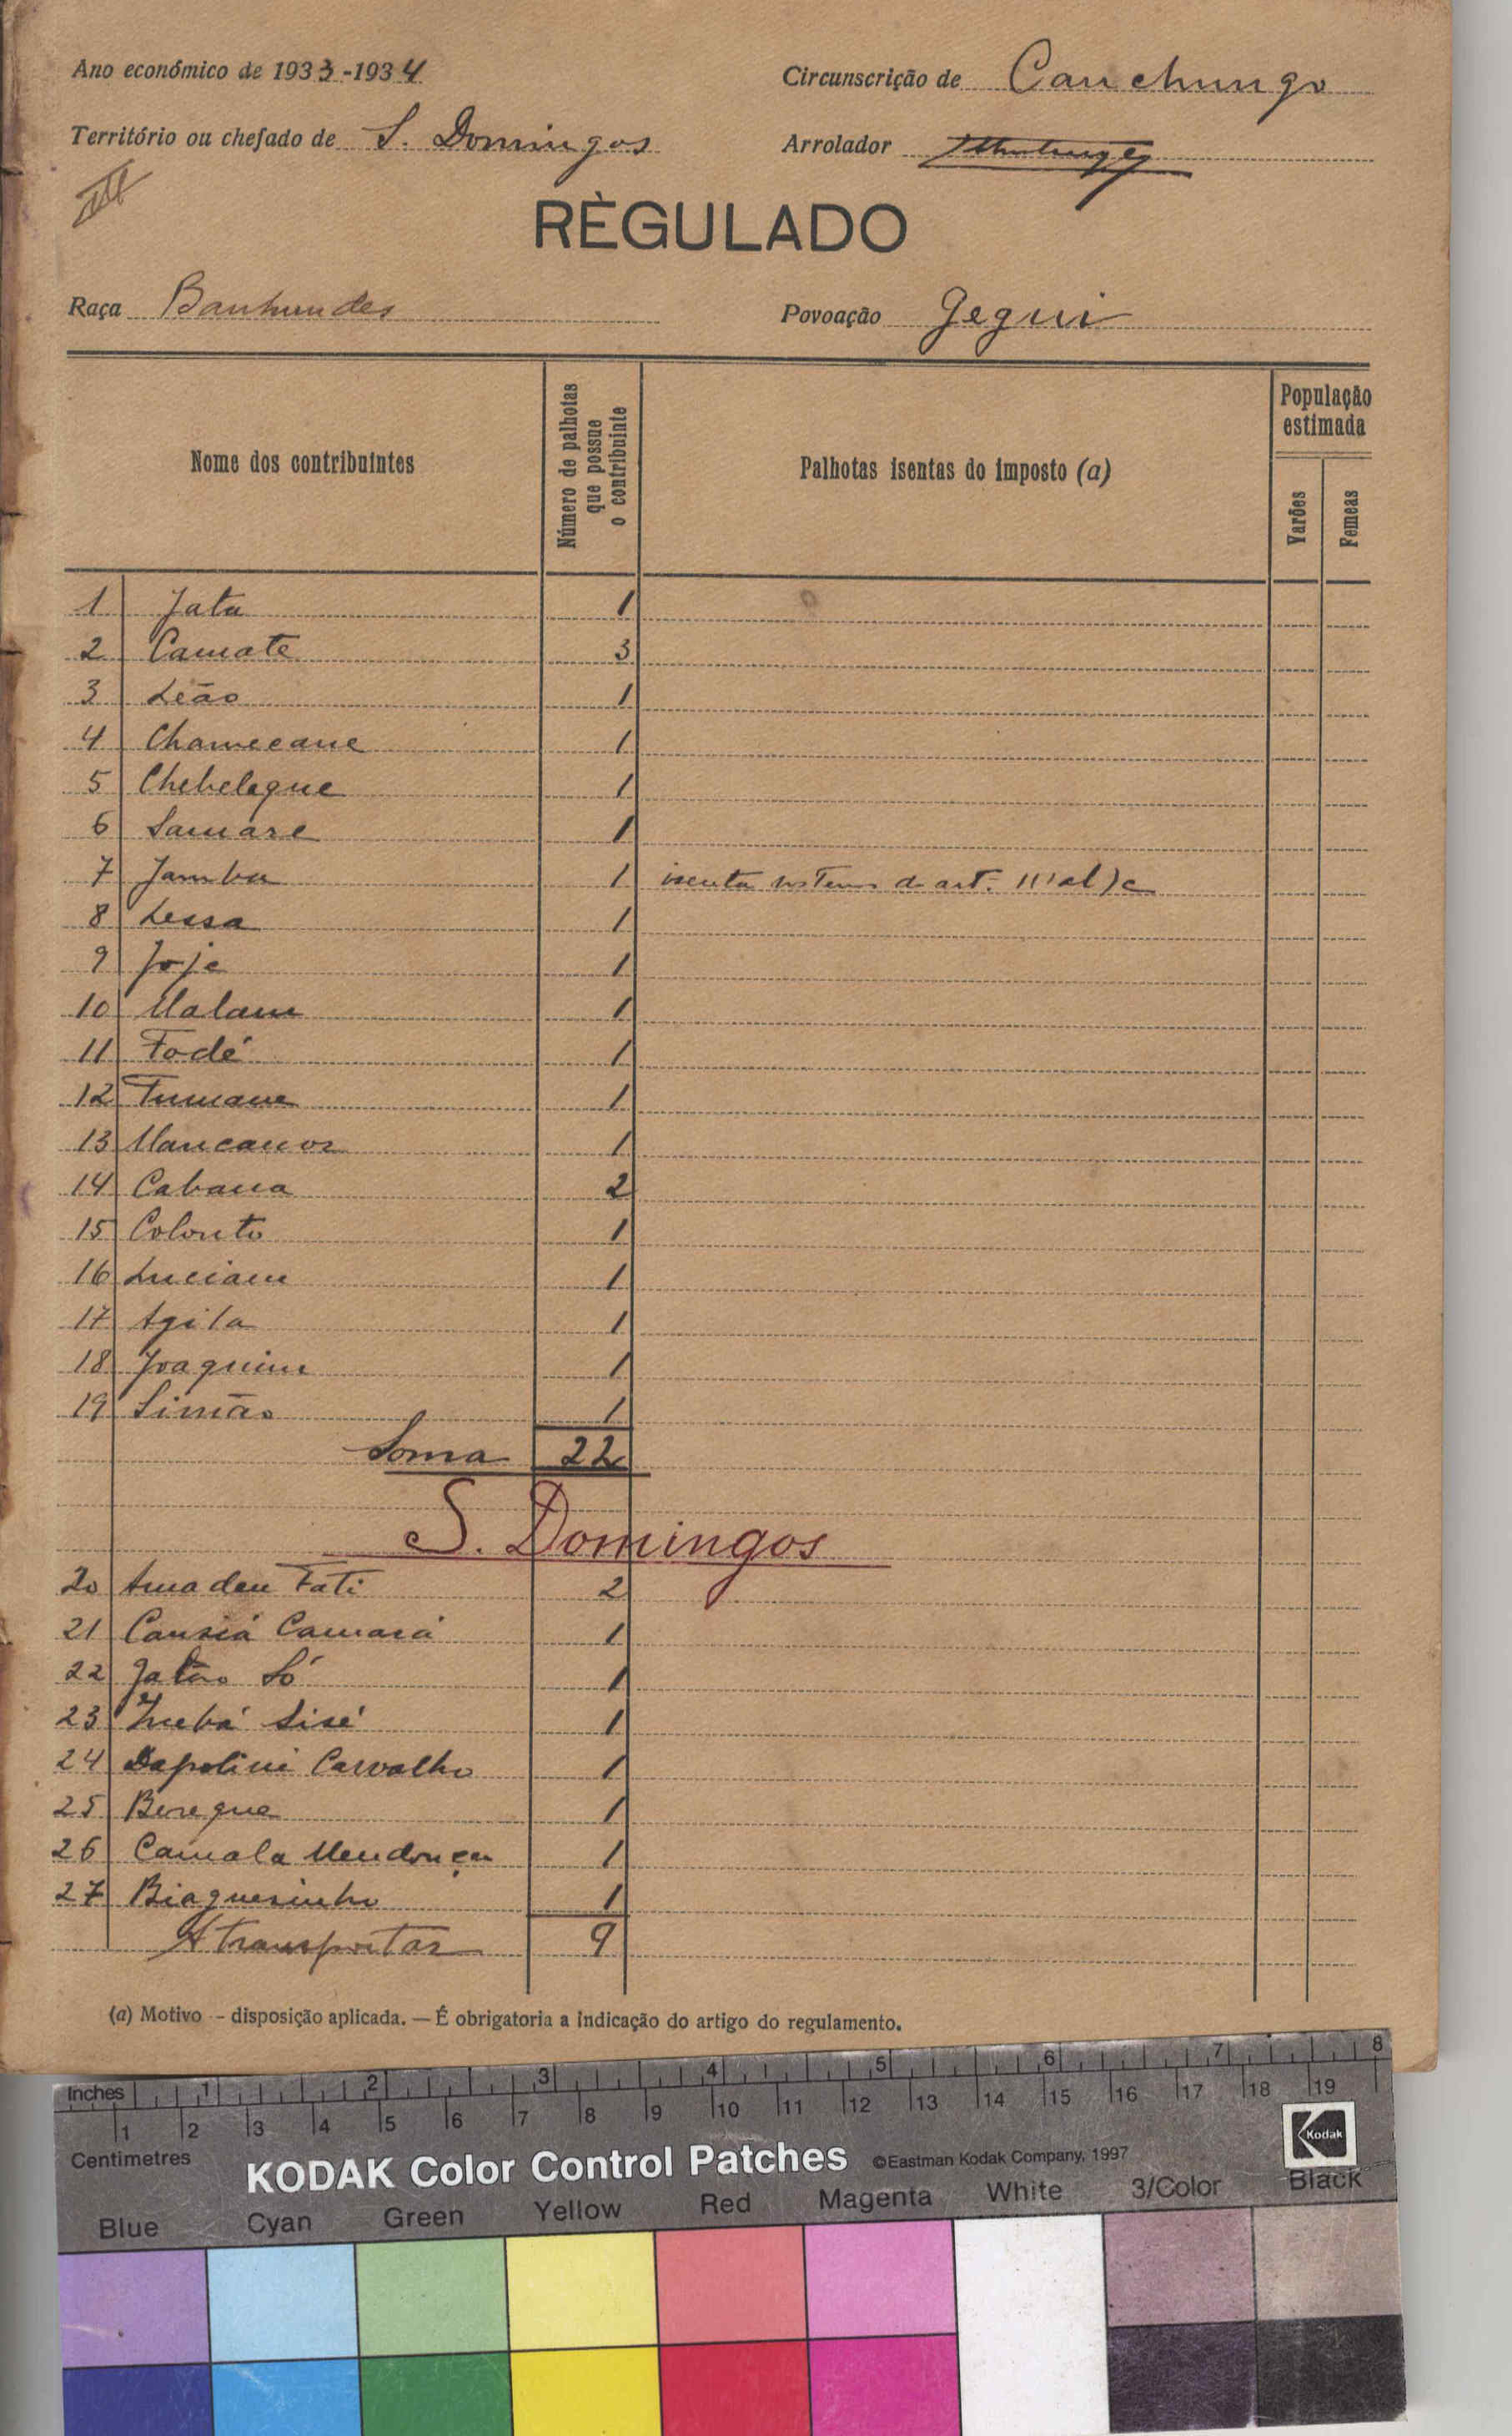 Ano económico de 1933-1934
Circunscrição de Canchungo
Território ou chefado de S. Domingos
Arrolador
III
RÈGULADO
Raça Banhundes
Povoação Jegui
Nome dos contribuintes
Número de palhotas que possue o contribuinte
Palhotas isentas do imposto (a)
População estimada
Varões
Femeas
1 Jata 1
2 Camate 3
3 Leão 1
4 Chamecane 1
5 Chebelegue 1
6 Samare 1
7 Jamba 1 isenta nos termos do art. 11º al) c
8 Lessa 1
9 Joje 1
10 Malam 1
11 Fodé 1
12 Tumane 1
13 Mancanor 1
14 Cabana 2
15 Colonto 1
16 Luciam 1
17 Agila 1
18 Joaquim 1
19 Simão 1
Soma 22
S. Domingos
20 Amadeu Fati 2
21 Cansiá Camará 1
22 Jalão Só 1
23 Insbá Sisé 1
24 Dapolini Carvalho 1
25 Beregue 1
26 Camala Mendonça 1
27 Biaguesinho 1
A transportar 9
(a) Motivo - disposição aplicada. — É obrigatoria a indicação do artigo do regulamento.
Inches 1 2 3 4 5 6 7 8
1 2 3 4 5 6 7 8 9 10 11 12 13 14 15 16 17 18 19
Centimetres
KODAK Color Control Patches ©Eastman Kodak Company, 1997
Kodak
Blue Cyan Green Yellow Red Magenta White 3/Color Black